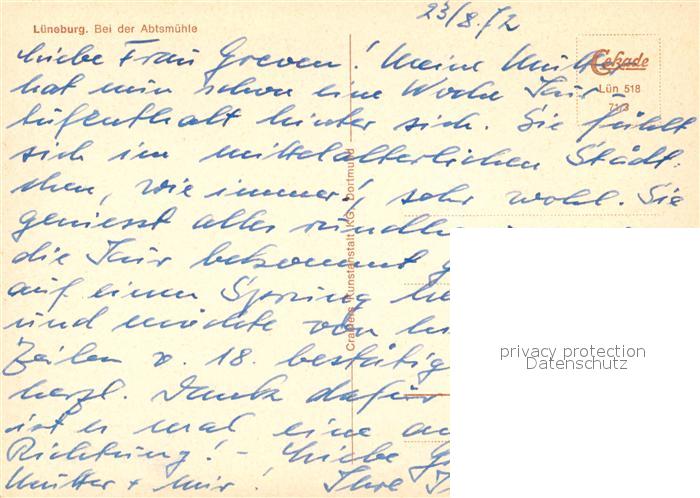 23/8.72
Lüneburg. Bei der Abtsmühle
Liebe Frau Greven! Meine Mutter
hat nun schon eine Woche Kur-
aufenthalt hinter sich. Sie fühlt
sich im mittelalterlichen Städt-
chen, wie immer, sehr wohl. Sie
geniesst alles rundh
die Kur bekommt g
auf einen Sprung he
und möchte von
Zeilen v. 18. bestätig
herzl. Dank dafür
ist es mal eine an
Richtung! - Liebe G
Mutter + mir! Ihre
Cekade
Lün 518
71/3
Cramers Kunstanstalt KG, Dortmund
privacy protection
Datenschutz